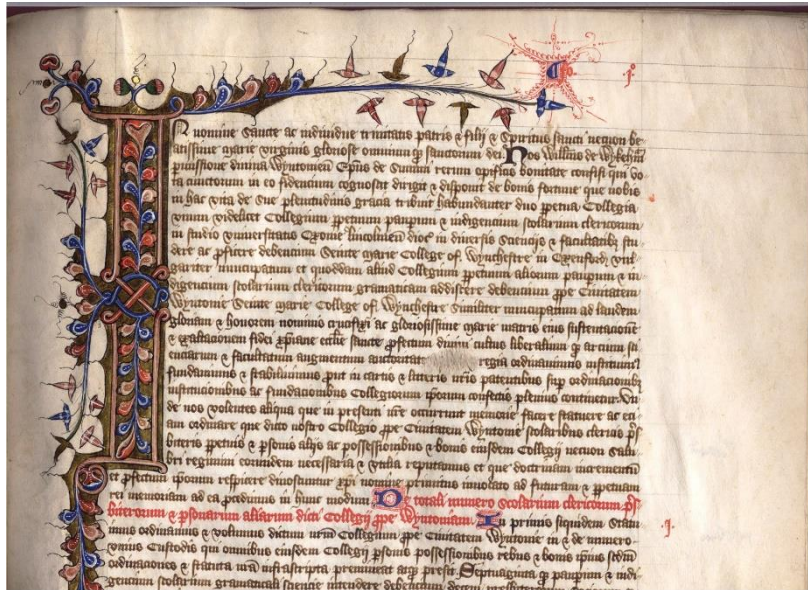 In nomine Sancte ac individue trinitatis patris & filij & Spiritus sancti necnon be
atissime marie virginis gloriose omnium q̄ sanctorum dei. Nos Willm̄s de Wykeh̄m
p̄missione divina Wyntonien̄ Ep̄us de Summi rerum opificis bonitate confisi qui vo
ta cunctorum in eo fidencium cognoscit dirigit & disponit de bonis fortune que nobis
in hac vita de sue plenitudinis gracia tribuit habundanter duo ppetua Collegia
unum videlicet Collegium ppetuum paupum & indigencium scolarium clericorum
in studio universitatis Oxonie lincolnien̄ dioc̄ in diversis Sciencijs & facultatib; stu
dere ac pficere debencium Seinte marie College of Wynchestre in Oxenford, vul
gariter nuncupatum et quoddam aliud Collegium ppetuum aliorum paupum & in
digencium scolarium clericorum gramaticam addiscere debencium ppe Civitatem
Wyntonie Seinte marie College of Wynchestre Similiter nuncupatum ad laudem
gloriam & honorem nominis crucifixi ac gloriosissime marie matris eius sustentacionē
& exaltacionem fidei xp̄iane ecclie sancte pfectum divini cultus liberalium q̄ arcium sci
enciarum & facultatum augmentum auctoritate regia ordinavimus instituim⁹
fundavimus & stabilivimus put in cartis & literis nr̄is patentibus sup ordinacionib;
institucionibus ac fundacionibus Collegiorum ip̄orum confectis plenius continetur. Un
de nos volentes aliqua que in presenti nr̄e occurrunt memorie facere statuere ac eci
am ordinare que dicto nostro Collegio ppe Civitatem Wyntonie scolaribus clericis p̄s
biteris ppetuis & psonis alijs ac possessionibus & bonis eiusdem Collegij necnon Salu
bri regimini eorundem necessaria & utilia reputamus et que doctrinam incrementū
et pfectum ip̄orum respicere dinoscuntur xp̄i nomine primitus invocato ad futuram & ppetuam
rei memoriam ad ea pcedimus in hunc modum. De totali numero Scolarium clericorum p̄s
biterorum & psonarum aliarum dicti Collegij ppe Wyntoniam. In primis siquidem Statu
imus ordinamus & volumus dictum nr̄m Collegium ppe Civitatem Wyntonie in & de numero
unius Custodis qui omnibus eiusdem Collegij psonis possessionibus rebus & bonis ip̄ius scdm̄
ordinaciones & statuta nr̄a infrascripta premineat atq; presit. Septuaginta q̄ paupum & indi
gencium scolarium gramaticali sciencie intendere debencium decem